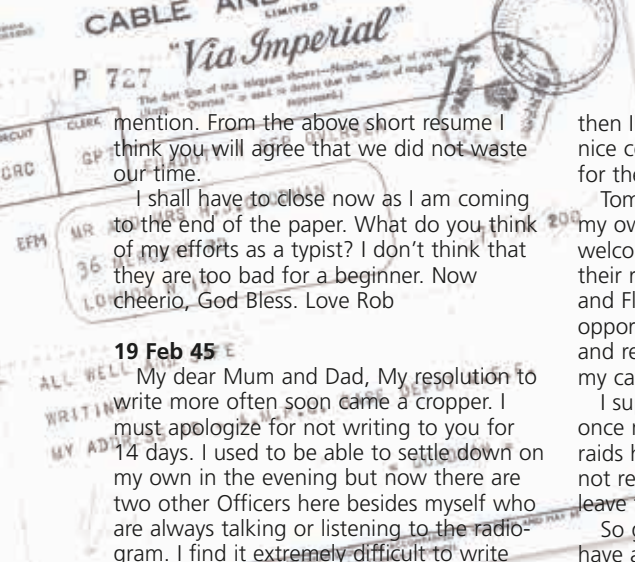 CABLE AND
LIMITED
"Via Imperial"
P 727
CLERK
GRC
mention. From the above short resume I
think you will agree that we did not waste
our time.
I shall have to close now as I am coming
to the end of the paper. What do you think
of my efforts as a typist? I don't think that
they are too bad for a beginner. Now
cheerio, God Bless. Love Rob
EFM
MR AND MRS H
36
LONDON N
200
19 Feb 45
My dear Mum and Dad, My resolution to
write more often soon came a cropper. I
must apologize for not writing to you for
14 days. I used to be able to settle down on
my own in the evening but now there are
two other Officers here besides myself who
are always talking or listening to the radio-
gram. I find it extremely difficult to write
ALL WELL AND SAFE
WRITING
MY ADDRESS
then I
nice co
for the
Tom
my ow
welco
their r
and Fl
oppor
and re
my ca
I su
once r
raids h
not re
leave
So g
have a